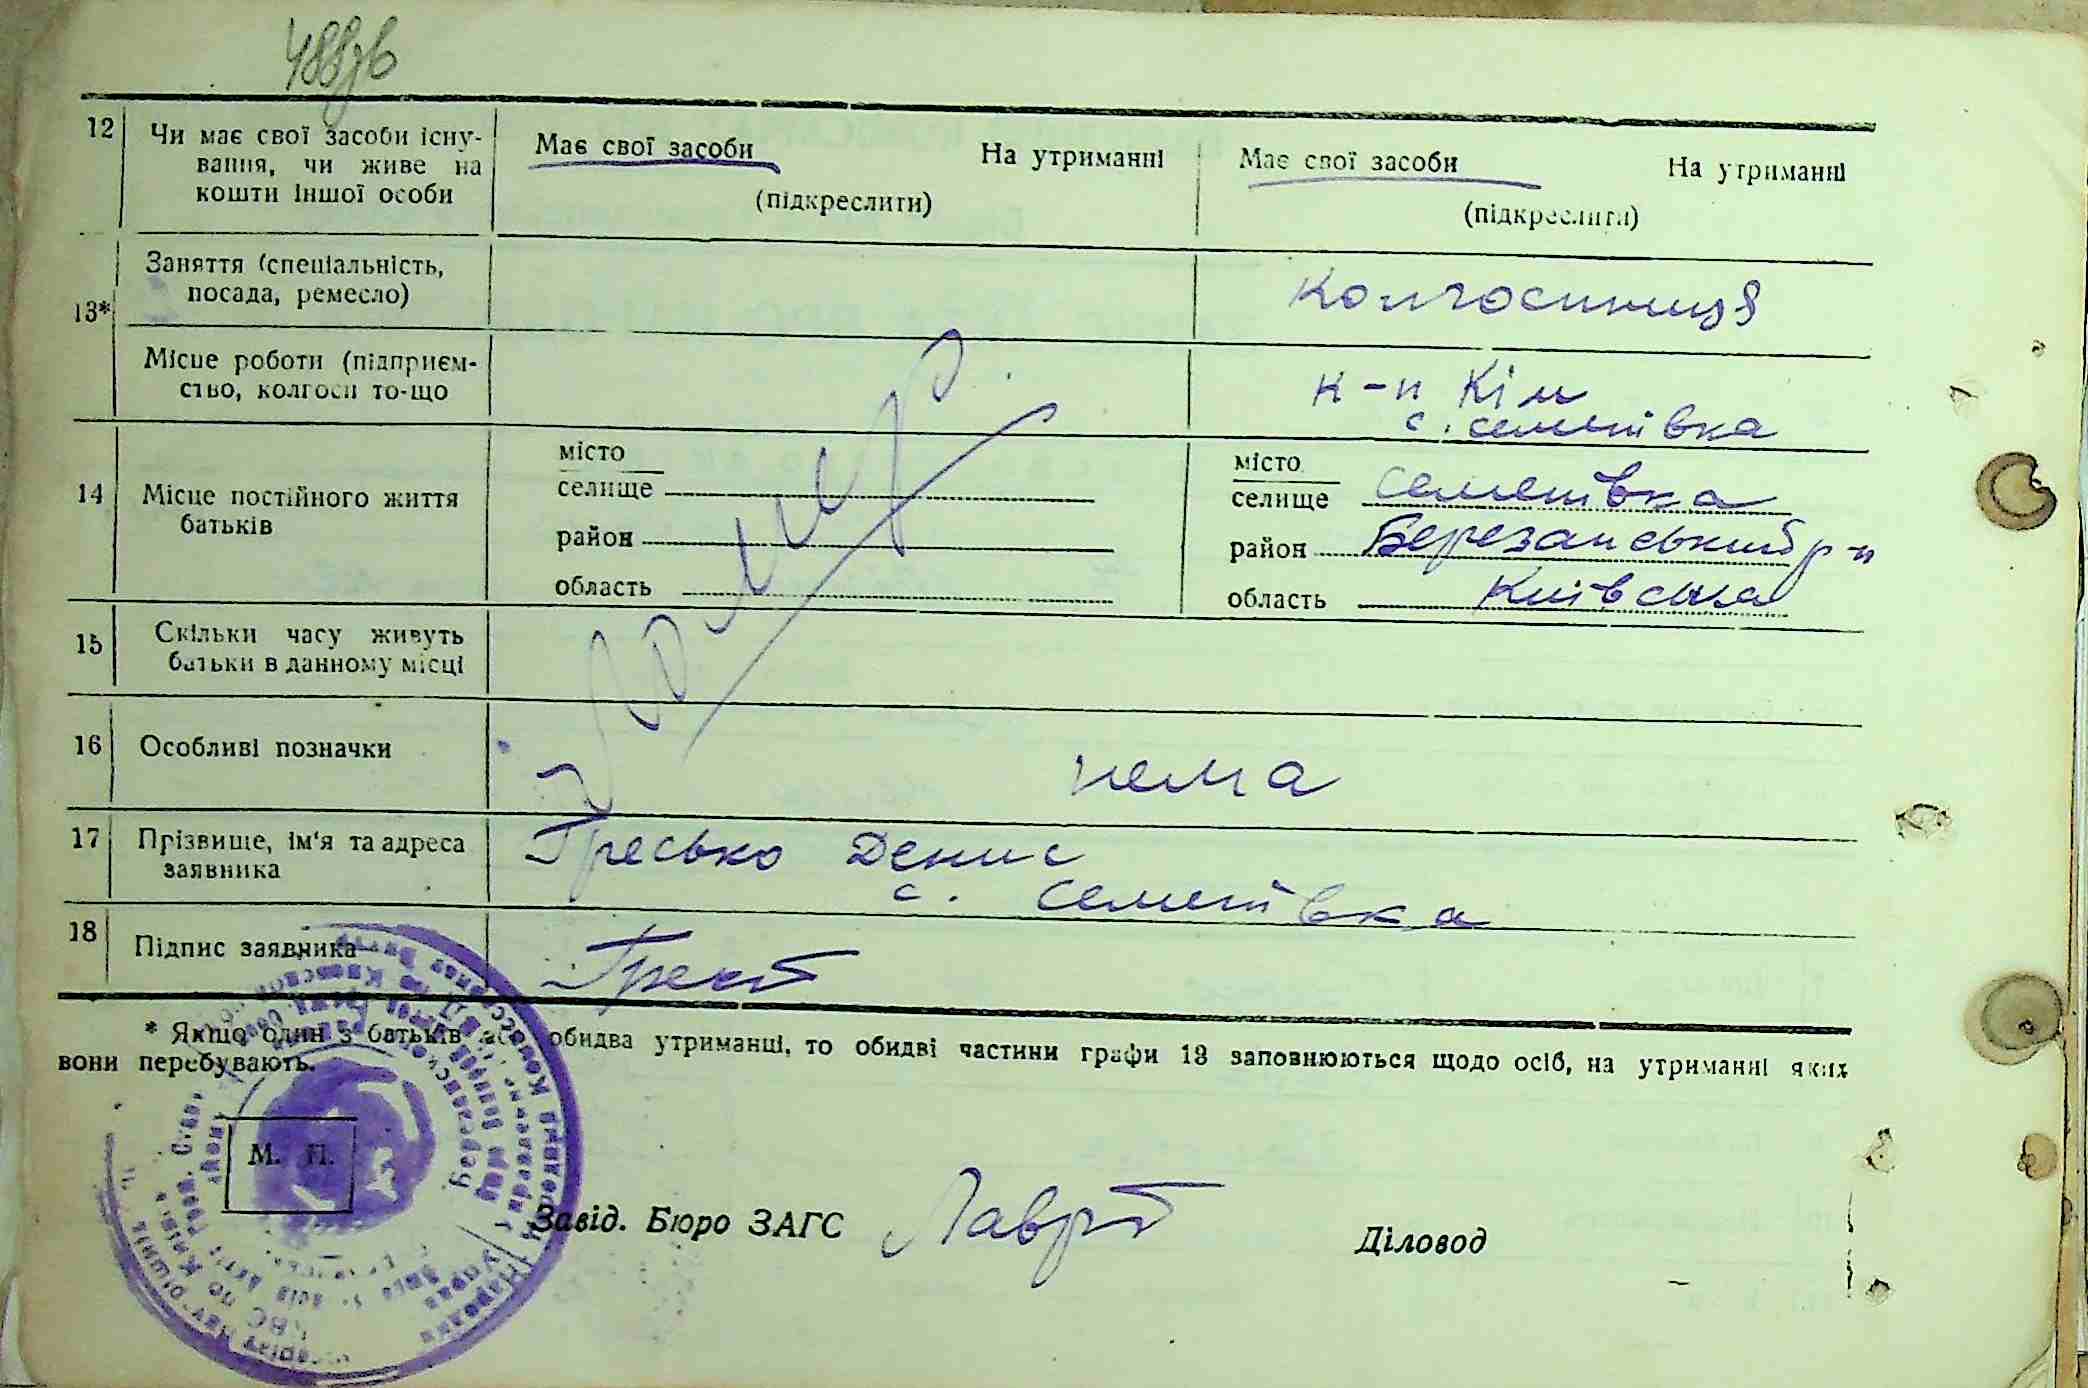 488зв
12 Чи має свої засоби існу-
вання, чи живе на
кошти іншої особи
Має свої засоби На утриманні
(підкреслити)
Має свої засоби На утриманні
(підкреслити)
13* Заняття (спеціальність,
посада, ремесло)
колгосниця
Місце роботи (підприєм-
ство, колгосп то-що
к-п Кім
с. семенівка
14 Місце постійного життя
батьків
місто
селище
район
область
місто
селище семенівка
район Березанський р-н
область Київська
15 Скільки часу живуть
батьки в данному місці
16 Особливі позначки
нема
17 Прізвище, ім'я та адреса
заявника
Гресько Денис
с. семенівка
18 Підпис заявника
* Якщо один з батьків обидва утриманці, то обидві частини графи 13 заповнюються щодо осіб, на утриманні яких
вони перебувають.
М. П.
Завід. Бюро ЗАГС Діловод